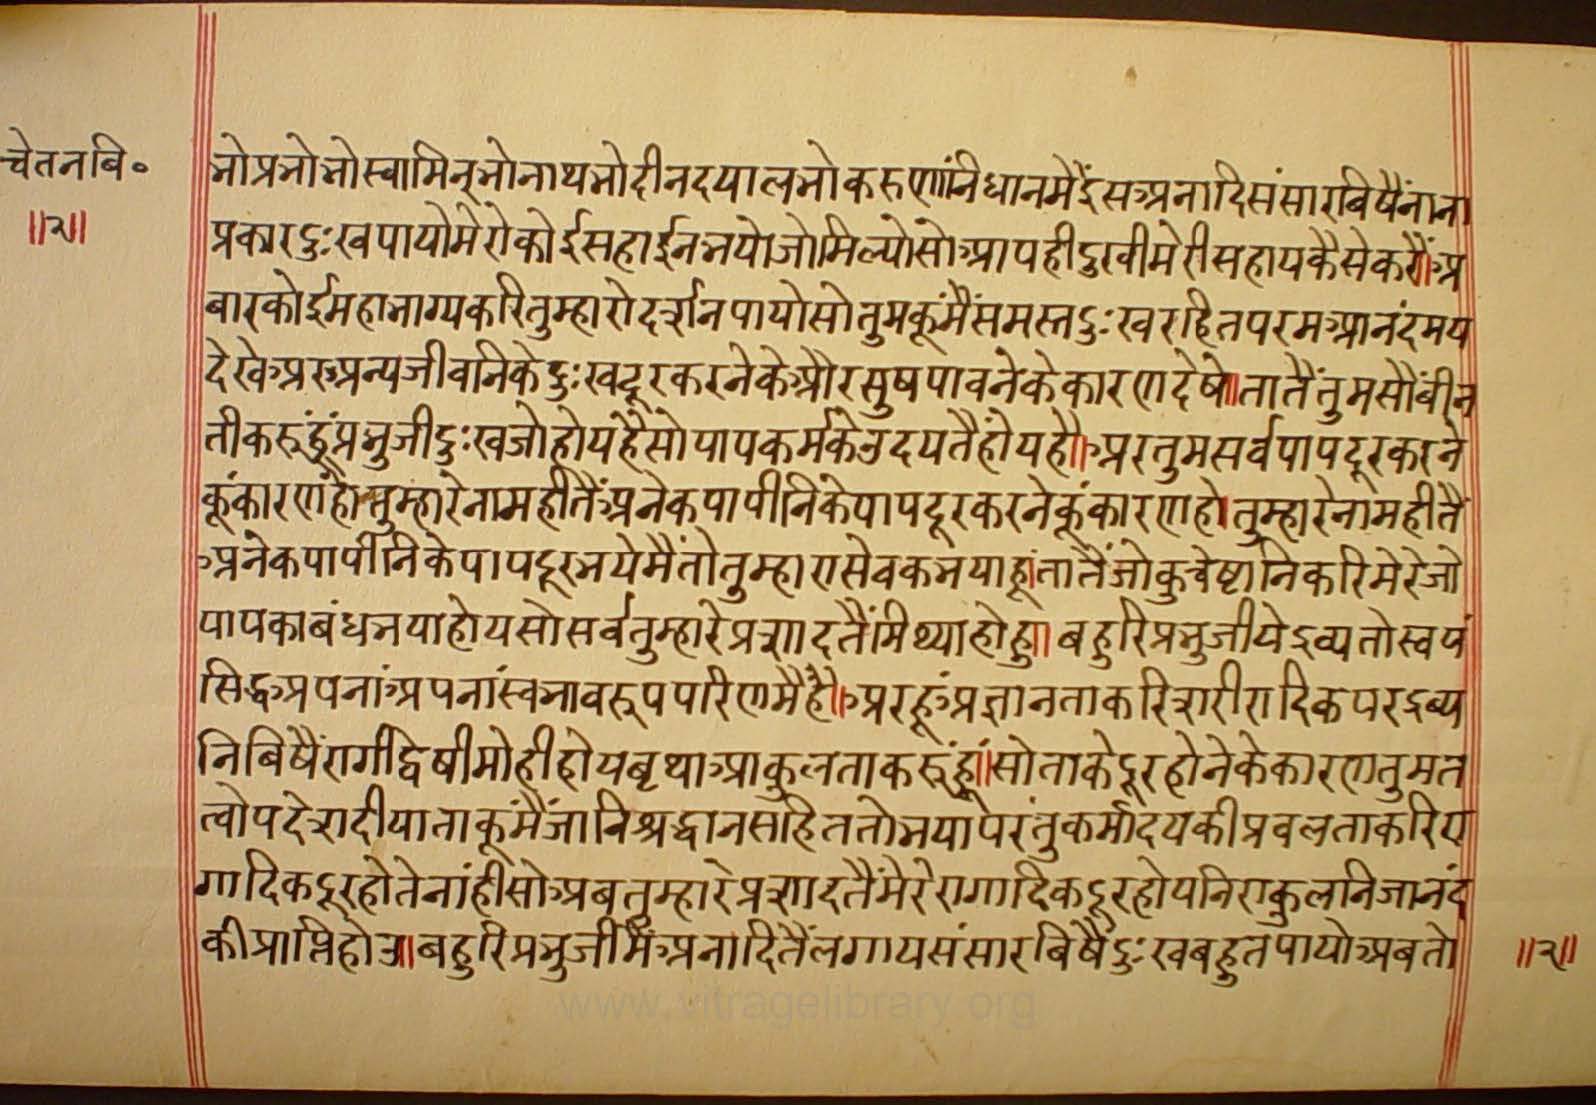 चेतनबि॰
॥२॥
भोप्रभोभोस्वामिन्भोनाथभोदीनदयालभोकरुणांनिधानमैंइसअनादिसंसारबिषैंनाना
प्रकारदुःखपायोमेरोकोईसहाईनभयोजोमिल्योसोआपहीदुखीमेरीसहायकैसेकरैं॥अ
बारकोईमहाभाग्यकरितुम्हारोदर्शनपायोसोतुमकूंमैंसमस्तदुःखरहितपरमआनंदमय
देखेअरुअन्यजीवनिकेदुःखदूरकरनेकेऔरसुषपावनेकेकारणदेषे॥तातैंतुमसौंबीन
तीकरूंहूंप्रभुजीदुःखजोहोयहैसोपापकर्मकेउदयतैंहोयहै॥अरतुमसर्वपापदूरकरने
कूंकारणहोतुम्हारेनामहीतैंअनेकपापीनिकेपापदूरकरनेकूंकारणहो।तुम्हारेनामहीतैं
अनेकपापीनिकेपापदूरभयेमैंतोतुम्हारासेवकभयाहूं।तातैंजोकुचेष्टानिकरिमेरेजो
पापकाबंधभयाहोयसोसर्वतुम्हारेप्रशादतैंमिथ्याहोहु॥बहुरिप्रभुजीयेद्रव्यतोस्वयं
सिद्धअपनांअपनांस्वभावरूपपरिणमैहै॥अरहूंअज्ञानताकरिशरीरादिकपरद्रव्य
निबिषैंरागीद्वेषीमोहीहोयबृथाआकुलताकरूंहूं॥सोताकेदूरहोनेकेकारणतुमत
त्वोपदेशदीयाताकूंमैंजानिश्रद्धानसहिततोभयापरंतुकर्मोदयकीप्रबलताकरिरा
गादिकदूरहोतेनांहीसोअबतुम्हारेप्रशादतैंमेरेरागादिकदूरहोयनिराकुलनिजानंद
कीप्राप्तिहोउ॥बहुरिप्रभुजीमैंअनादितैंलगायसंसारबिषैंदुःखबहुतपायोअबतो
॥२॥
www.vitragelibrary.org